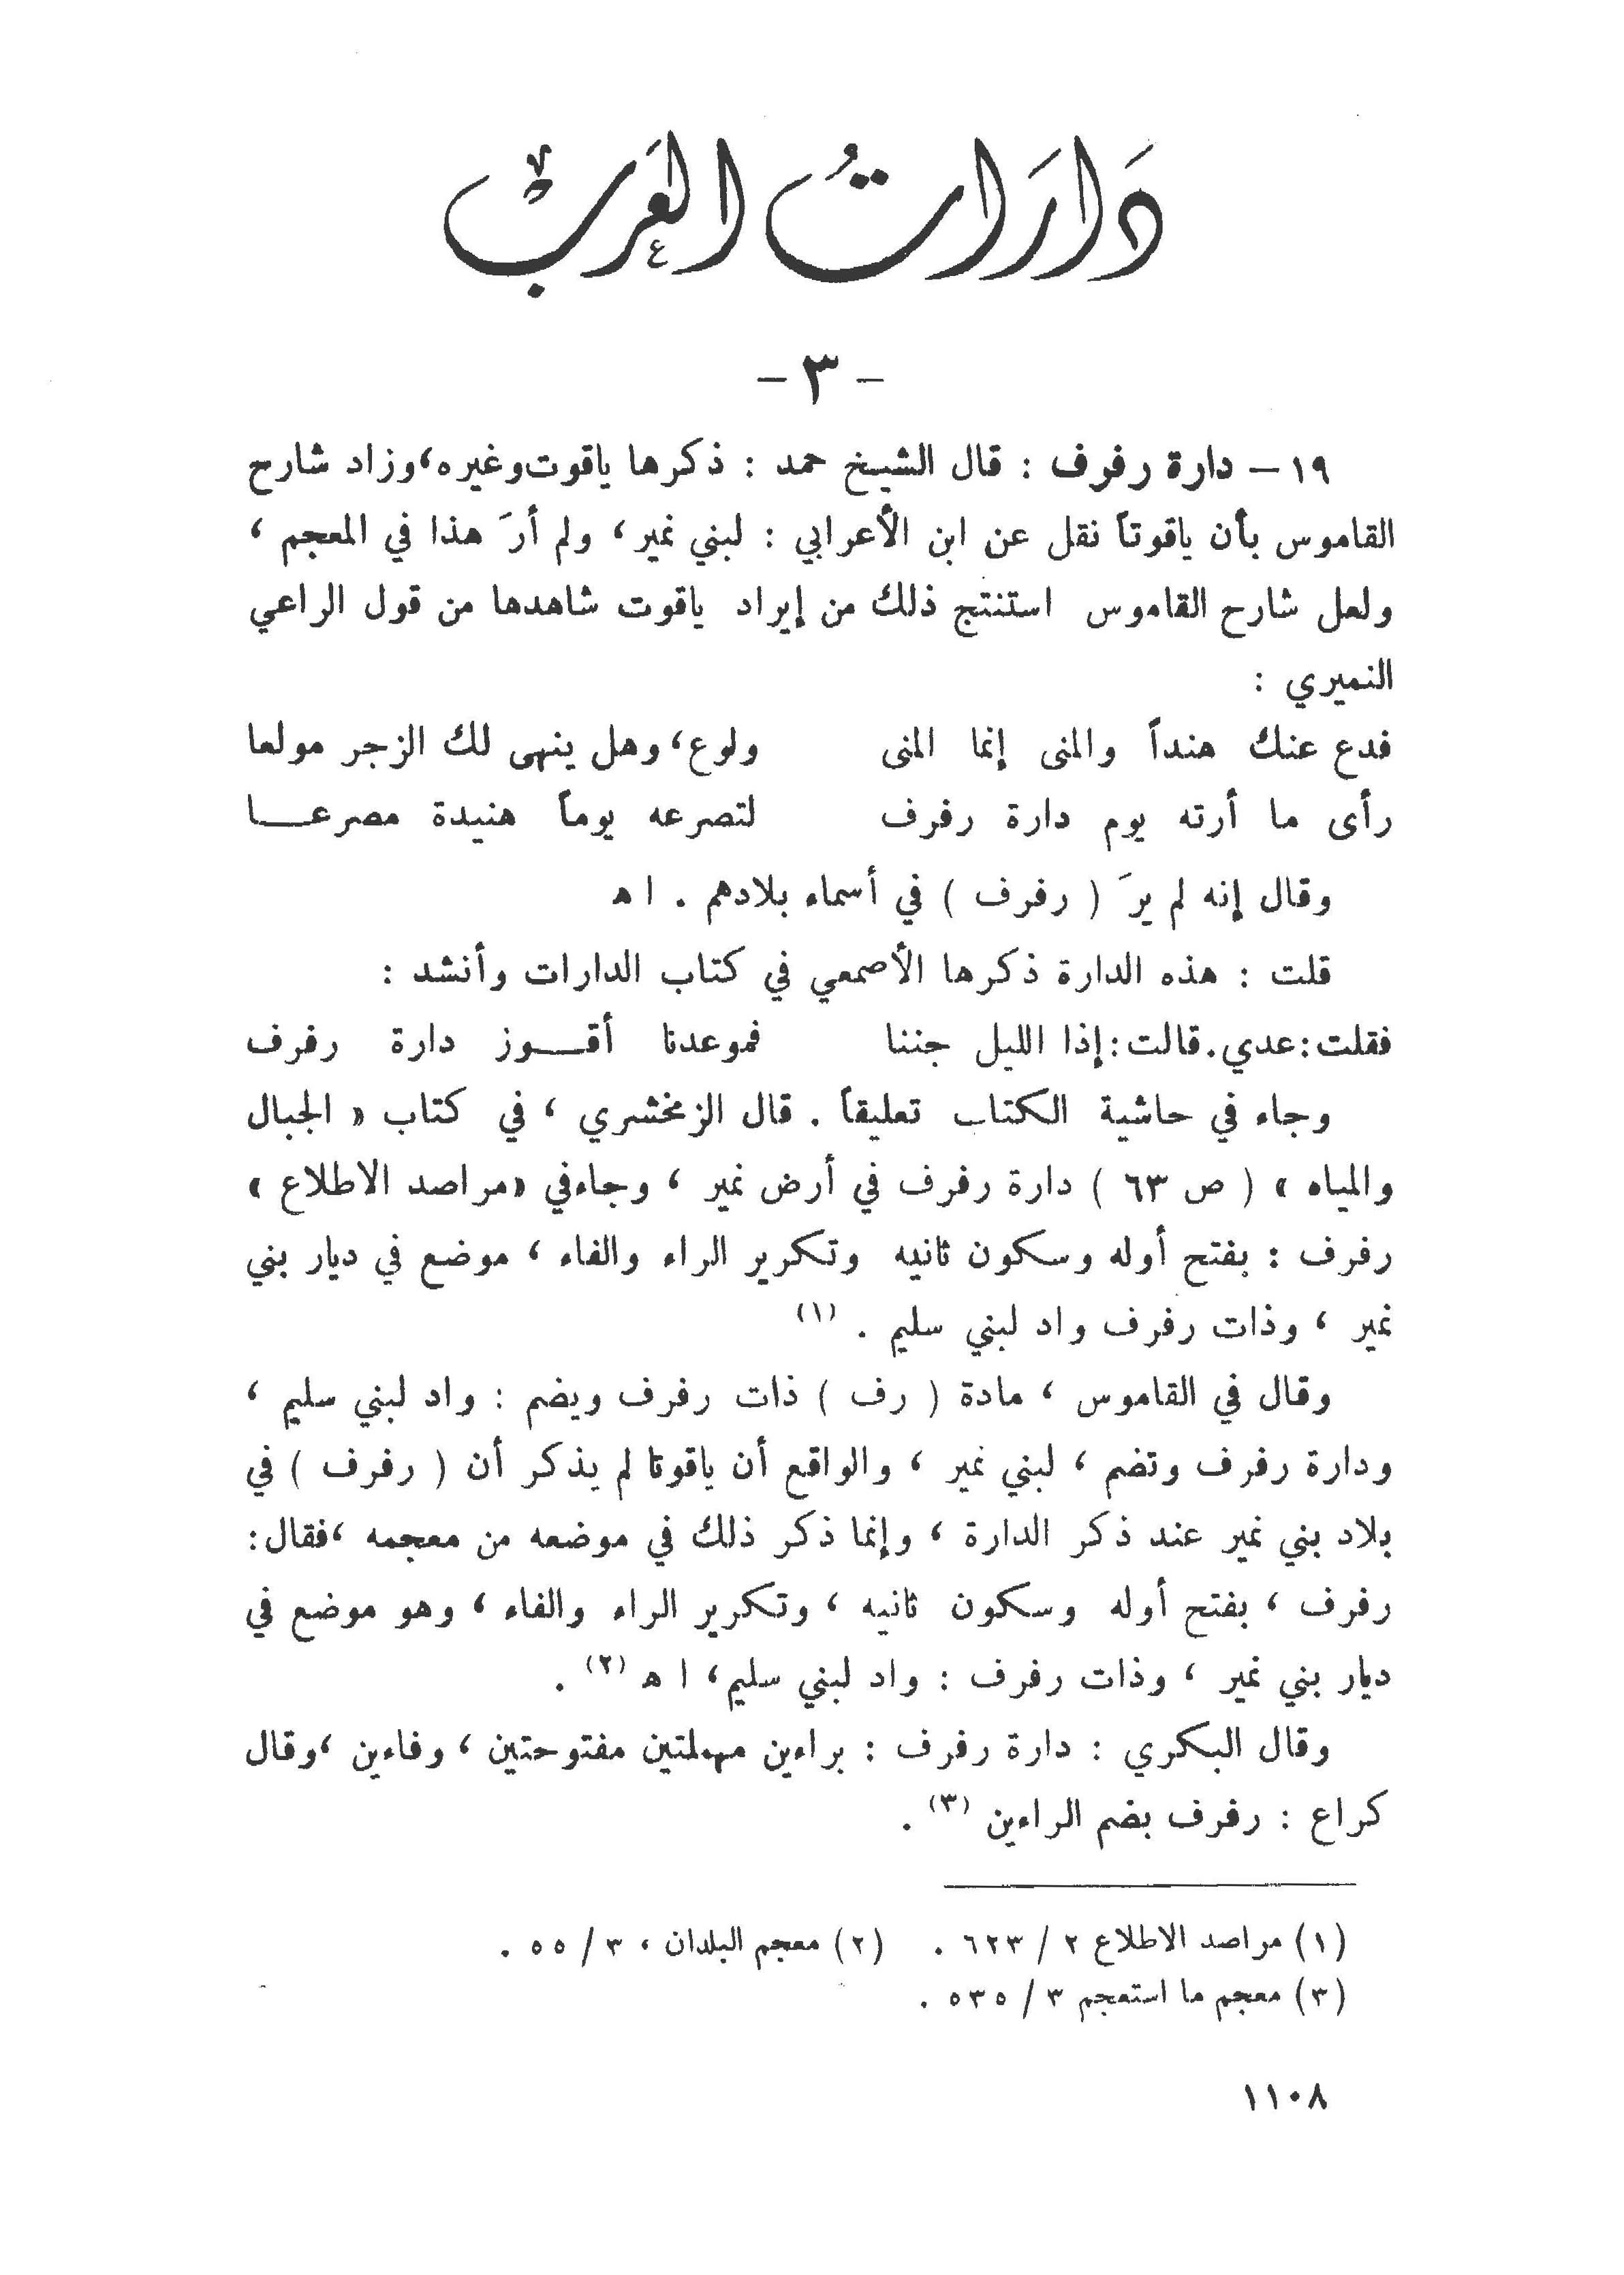 دَارَاتُ العَرَبْ
- ٣ -
١٩ - دارة رفرف : قال الشيخ حمد : ذكرها ياقوت وغيره، وزاد شارح
القاموس بأن ياقوتاً نقل عن ابن الأعرابي : لبني نمير، ولم أرَ هذا في المعجم ،
ولعل شارح القاموس استنتج ذلك من إيراد ياقوت شاهدها من قول الراعي
النميري :
فدع عنك هنداً والمنى إنما المنى ولوع، وهل ينهى لك الزجر مولعا
رأى ما أرته يوم دارة رفرف لتصرعه يوماً هنيدة مصرعـــا
وقال إنه لم يرَ ( رفرف ) في أسماء بلادهم . ا ه
قلت : هذه الدارة ذكرها الأصمعي في كتاب الدارات وأنشد :
فقلت:عدي.قالت:إذا الليل جننا فموعدنا أقـــوز دارة رفرف
وجاء في حاشية الكتاب تعليقاً . قال الزمخشري ، في كتاب « الجبال
والمياه » ( ص ٦٣ ) دارة رفرف في أرض نمير ، وجاء في «مراصد الاطلاع »
رفرف : بفتح أوله وسكون ثانيه وتكرير الراء والفاء ، موضع في ديار بني
نمير ، وذات رفرف واد لبني سليم . (١)
وقال في القاموس ، مادة ( رف ) ذات رفرف ويضم : واد لبني سليم ،
ودارة رفرف وتضم ، لبني نمير ، والواقع أن ياقوتا لم يذكر أن ( رفرف ) في
بلاد بني نمير عند ذكر الدارة ، وإنما ذكر ذلك في موضعه من معجمه ،فقال:
رفرف ، بفتح أوله وسكون ثانيه ، وتكرير الراء والفاء ، وهو موضع في
ديار بني نمير ، وذات رفرف : واد لبني سليم، ا ه (٢) .
وقال البكري : دارة رفرف : براءين مهملتين مفتوحتين ، وفاءين ،وقال
كراع : رفرف بضم الراءين (٣) .
(١) مراصد الاطلاع ٢ / ٦٢٣ . (٢) معجم البلدان ، ٣ / ٥٥ .
(٣) معجم ما استعجم ٣ / ٥٣٥ .
١١٠٨